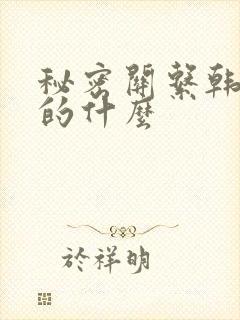 秘密關繫韩
的什麼
於祥明